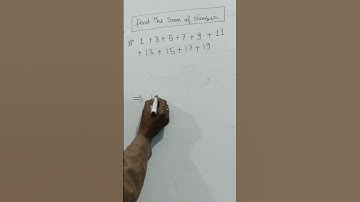 find the sum of number
1 + 3 + 5 + 7 + 9 + 11
+ 13 + 15 + 17 + 19
⇒